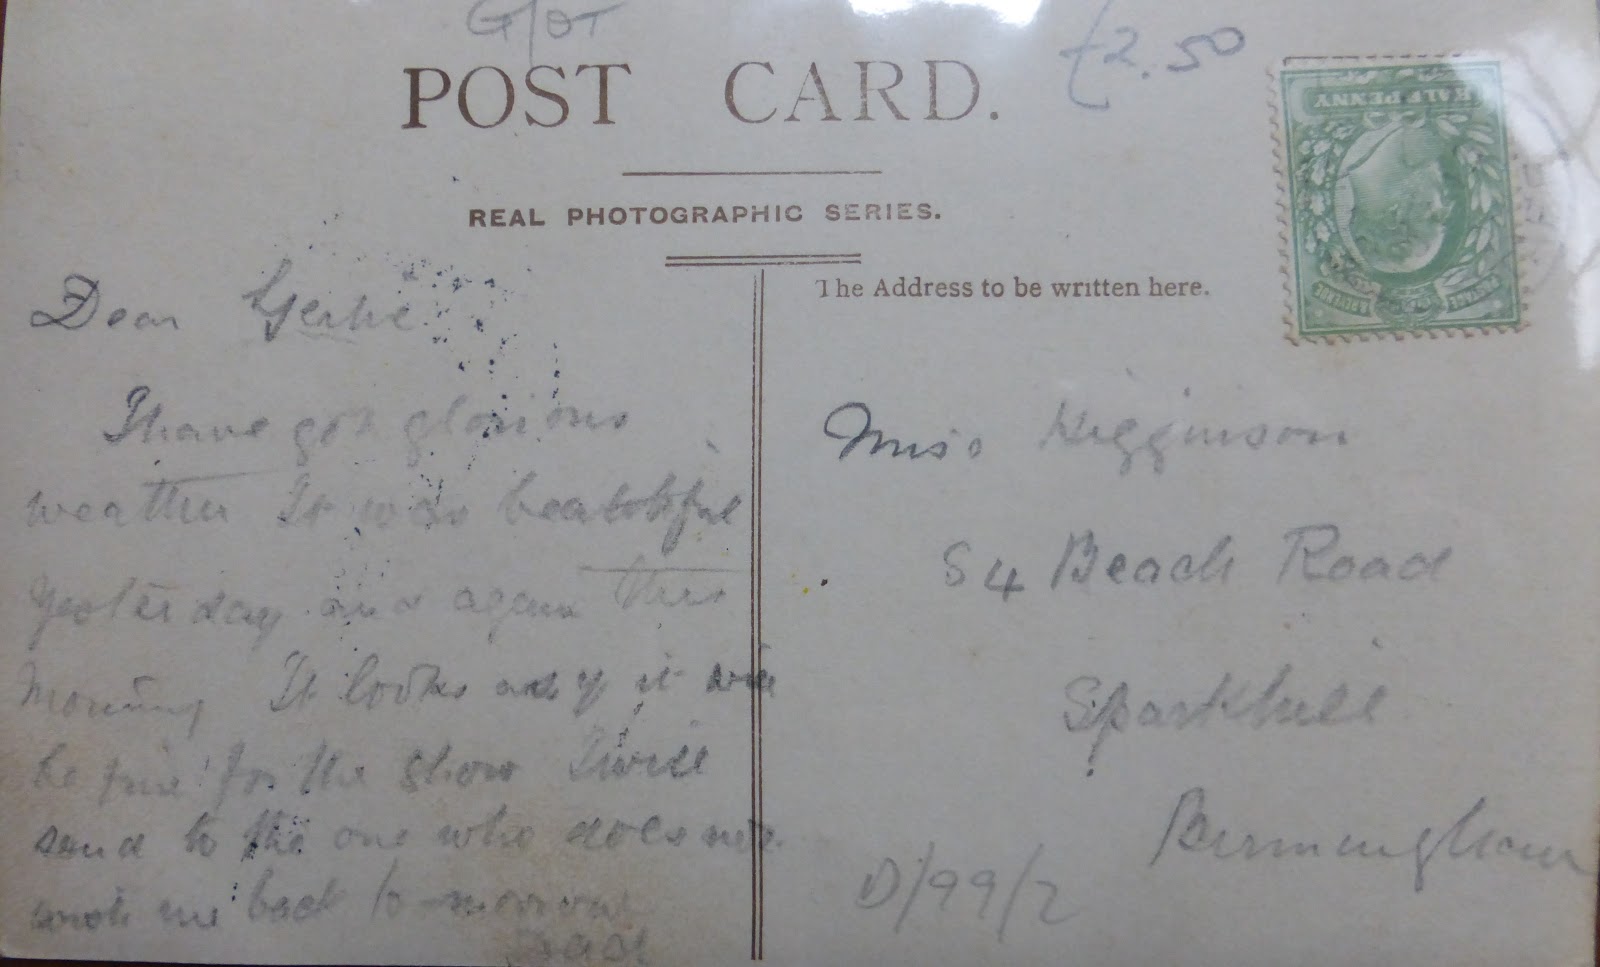 G/OT
£2.50
POST CARD.
REAL PHOTOGRAPHIC SERIES.
The Address to be written here.
HALFPENNY
POSTAGE
REVENUE
Dear Gertie
I have got glorious
weather It was
yesterday and again this
morning It looks as if it will
be fine for the show I will
send to the one who does not
me back to-morrow
Miss Higginson
54 Beach Road
Sparkhill
Birmingham
D/99/2